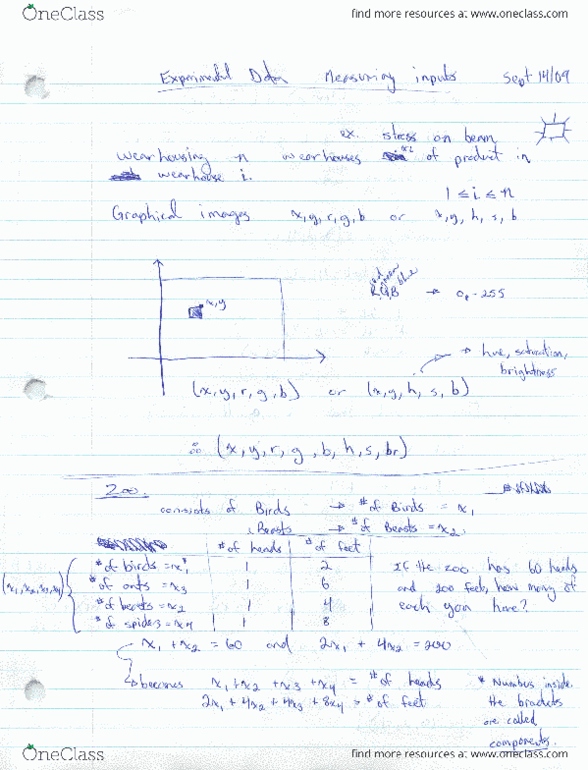 OneClass
find more resources at www.oneclass.com
Exprimental Data Measuring inputs Sept 14/09
ex. stress on beam
wearhousing n wearhouses of product in
wearhouse i.
1 ≤ i ≤ n
Graphical images x,y,r,g,b or x,y,h,s,b
x,y
red green blue
RGB → 0 - 255
→ hue, saturation,
brightness
(x,y,r,g,b) or (x,y,h,s,b)
∴ (x,y,r,g,b,h,s,br)
Zoo.
consists of Birds → # of Birds = x1
Beasts → # of Beasts = x2
# of heads # of feet
# of birds = x1 1 2
# of ants = x3 1 6
# of beasts = x2 1 4
# of spiders = x4 1 8
(x1,x2,x3,x4)
If the zoo has 60 heads
and 200 feet, how many of
each you have?
x1 + x2 = 60 and 2x1 + 4x2 = 200
becomes x1 + x2 + x3 + x4 = # of heads
2x1 + 4x2 + x3 + 8x4 = # of feet
* Numbers inside
the brackets
are called
components.
OneClass
find more resources at www.oneclass.com